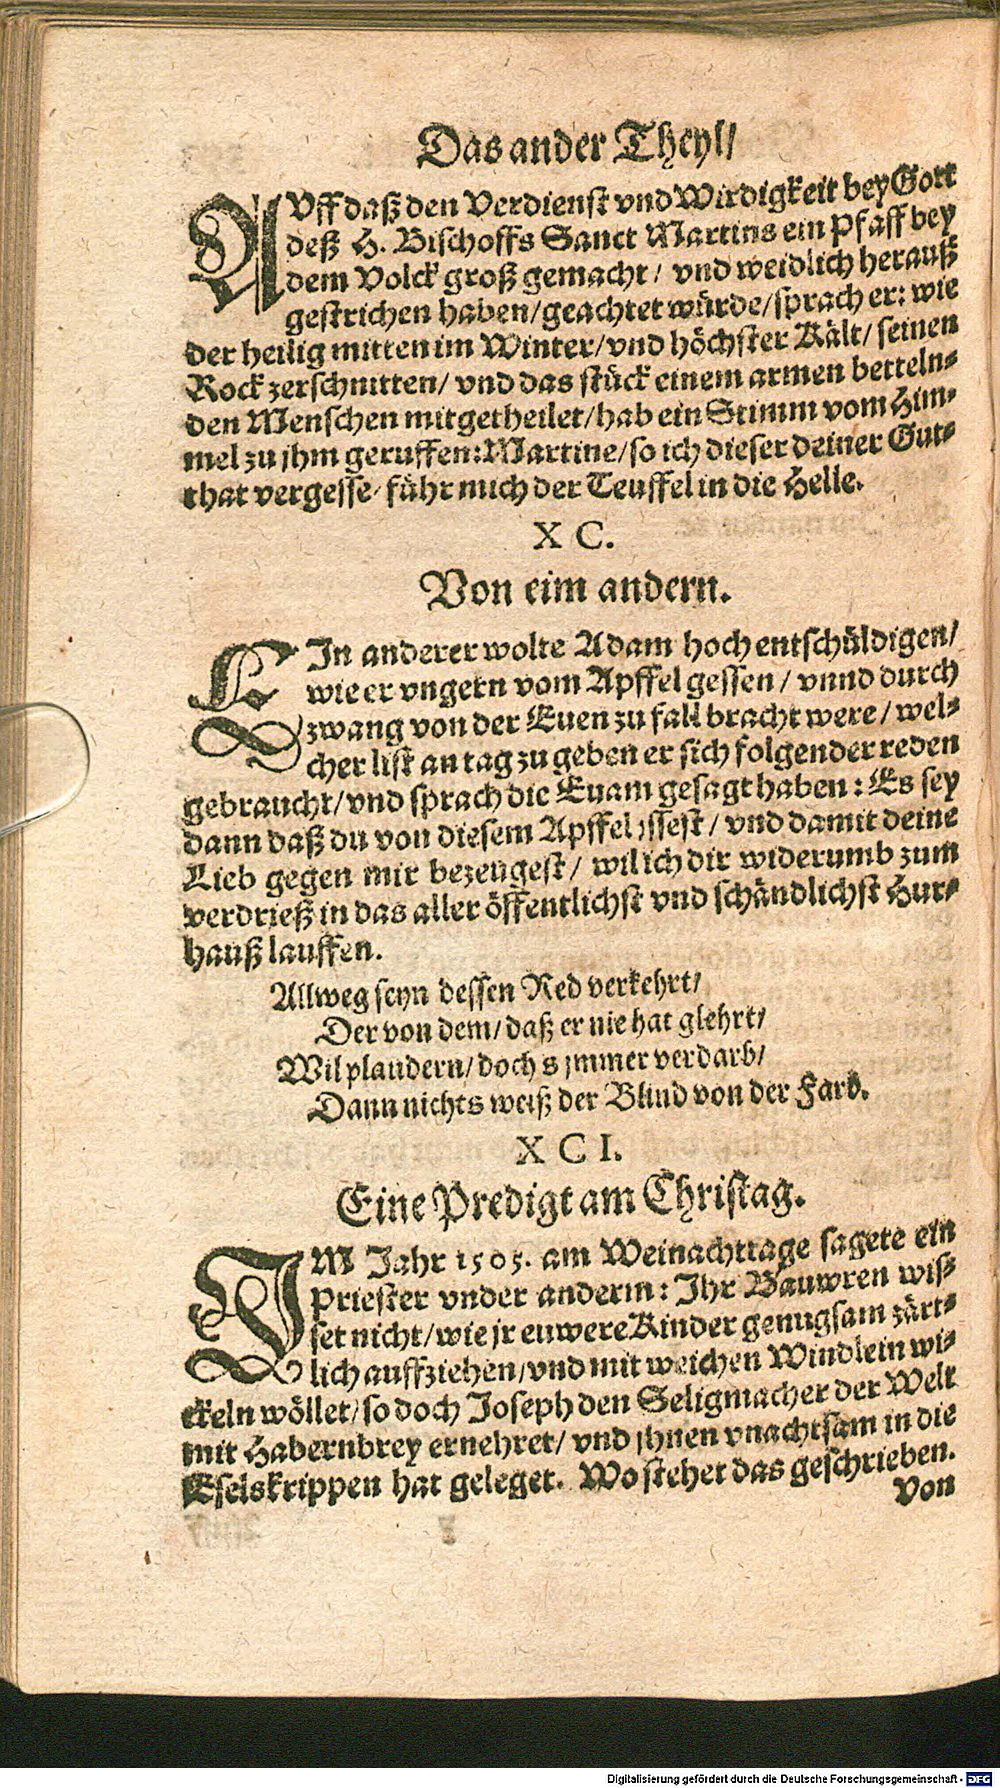 Das ander Theyl/
AVff daß den Verdienst vnd Wirdigkeit bey Gott
deß H. Bischoffs Sanct Martins ein Pfaff bey
dem Volck groß gemacht / vnd weidlich herauß
gestrichen haben/geachtet würde/sprach er: wie
der heilig mitten im Winter/vnd höchster Kält/ seinen
Rock zerschnitten/ vnd das stück einem armen betteln-
den Menschen mitgetheilet/hab ein Stimm vom Him-
mel zu jhm geruffen: Martine/so ich dieser deiner Gut-
that vergesse/ führ mich der Teuffel in die Helle.
XC.
Von eim andern.
EIn anderer wolte Adam hoch entschüldigen/
wie er vngern vom Apffel gessen / vnnd durch
zwang von der Euen zu fall bracht were / wel-
cher list an tag zu geben er sich folgender reden
gebraucht/vnd sprach die Euam gesagt haben: Es sey
dann daß du von diesem Apffel jssest / vnd damit deine
Lieb gegen mir bezeugest/ wil ich dir widerumb zum
verdrieß in das aller öffentlichst vnd schändlichst Hur-
hauß lauffen.
Allweg seyn dessen Red verkehrt/
Der von dem/daß er nie hat glehrt/
Wil plaudern/doch s jmmer verdarb/
Dann nichts weiß der Blind von der Farb.
XCI.
Eine Predigt am Christag.
IM Jahr 1505. am Weinachttage sagete ein
Priester vnder anderm: Ihr Bauwren wis-
set nicht/wie jr euwere Kinder genugsam zärt-
lich auffziehen/vnd mit weichen Windlein wi-
ckeln wöllet/so doch Joseph den Seligmacher der Welt
mit Habernbrey ernehret/ vnd jhnen vnachtsam in die
Eselskrippen hat geleget. Wo stehet das geschrieben.
Von
Digitalisierung gefördert durch die Deutsche Forschungsgemeinschaft - DFG